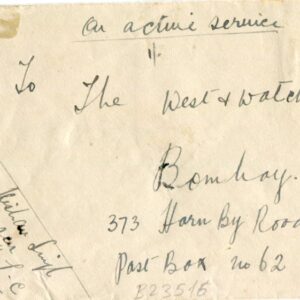 On active service
To
The West & Watch
Bombay.
373 Horn By Road
Post Box no 62
Kishan Singh
B23515